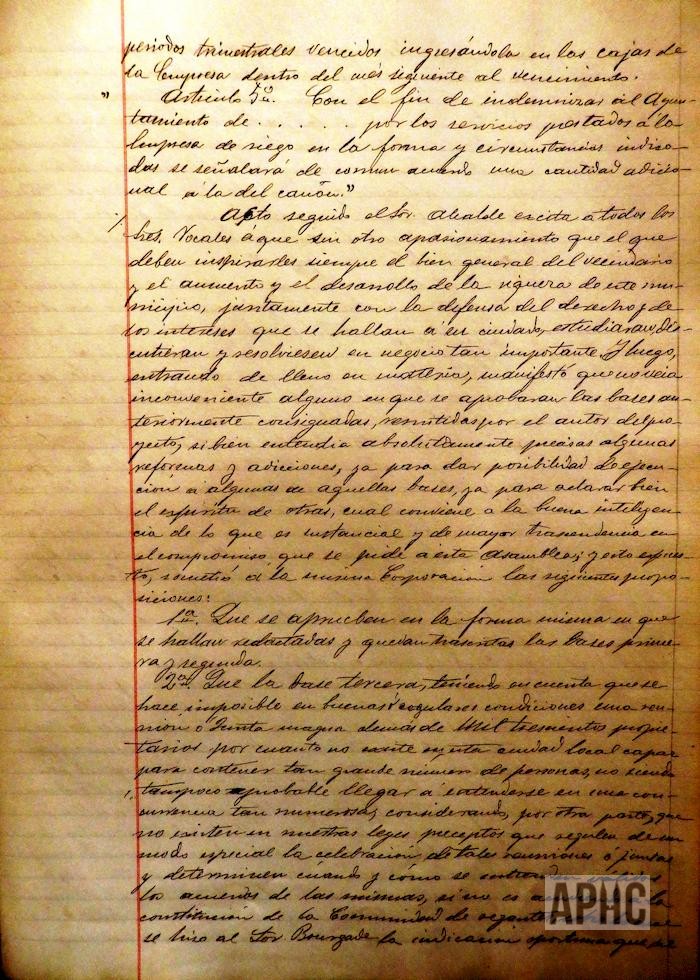 periodos trimestrales vencidos ingresándola en las cajas de
la Empresa dentro del més siguiente al vencimiento.
" Articulo 5º. Con el fin de indemnizar al Ayun-
tamiento de . . . . . por los servicios prestados á la
Empresa de riego en la forma y circunstancias indica-
das se señalará de comun acuerdo una cantidad adicio-
nal á la del cañon."
Acto seguido el Sor. Alcalde excita a todos los
Sres. Vocales á que sin otro apasionamiento que el que
deben inspirarles siempre el bien general del vecindario
y el aumento y el desarrollo de la riqueza de este mu-
nicipio, juntamente con la defensa del derecho y de
los intereses que se hallan á su cuidado, estudiaran, dis-
cutieran y resolviesen en negocio tan importante. Y luego,
entrando de lleno en materia, manifestó que no veia
inconveniente alguno en que se aprobaran las bases an-
teriormente consignadas, remitidas por el autor del pro-
yecto, si bien entendia absolutamente precisas algunas
reformas y adicciones, ya para dar posibilidad de ejecu-
ción á algunas de aquellas bases, ya para aclarar bien
el espíritu de otras, cual conviene a la buena inteligen-
cia de lo que es sustancial y de mayor trascendencia en
el compromiso que se pide a esta Asamblea; y esto espues-
to, sometió á la misma Corporación las siguientes propo-
siciones:
1ª. Que se aprueben en la forma misma en que
se hallan redactadas y quedan trascritas las bases prime-
ra y segunda.
2ª. Que la base tercera, teniendo en cuenta que se
hace imposible en buenas y regulares condiciones una reu-
nión o Junta magna de más de Mil trescientos propie-
tarios por cuanto no existe en esta ciudad local capaz
para contener tan grande número de personas, no siendo
tampoco probable llegar á entenderse en una con-
currencia tan numerosa; considerando, por otra parte, que
no existen en nuestras leyes preceptos que regulen de un
modo especial la celebración de tales reuniones ó juntas
y determinen cuando y cómo se entienden válidos
los acuerdos de las mismas, si no es a la
constitución de la Comunidad de regantes
se hizo al Sor. Bourgade la indicación oportuna que se
APHC